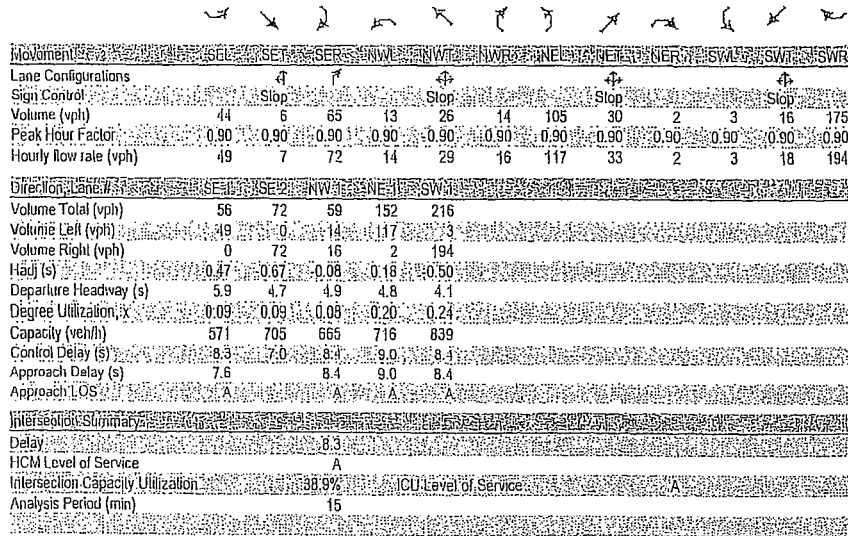 Movement SEL SET SER NWL NWT NWR NEL NET NER SWL SWT SWR
Lane Configurations
Sign Control Stop Stop Stop Stop
Volume (vph) 44 6 65 13 26 14 105 30 2 3 16 175
Peak Hour Factor 0.90 0.90 0.90 0.90 0.90 0.90 0.90 0.90 0.90 0.90 0.90 0.90
Hourly flow rate (vph) 49 7 72 14 29 16 117 33 2 3 18 194
Direction, Lane # SE 1 SE 2 NW 1 NE 1 SW 1
Volume Total (vph) 56 72 59 152 216
Volume Left (vph) 49 0 14 117 3
Volume Right (vph) 0 72 16 2 194
Hadj (s) 0.47 -0.67 -0.08 0.18 -0.50
Departure Headway (s) 5.9 4.7 4.9 4.8 4.1
Degree Utilization, x 0.09 0.09 0.08 0.20 0.24
Capacity (veh/h) 571 705 665 716 839
Control Delay (s) 8.3 7.0 8.4 9.0 8.4
Approach Delay (s) 7.6 8.4 9.0 8.4
Approach LOS A A A A
Intersection Summary
Delay 8.3
HCM Level of Service A
Intersection Capacity Utilization 38.9% ICU Level of Service A
Analysis Period (min) 15